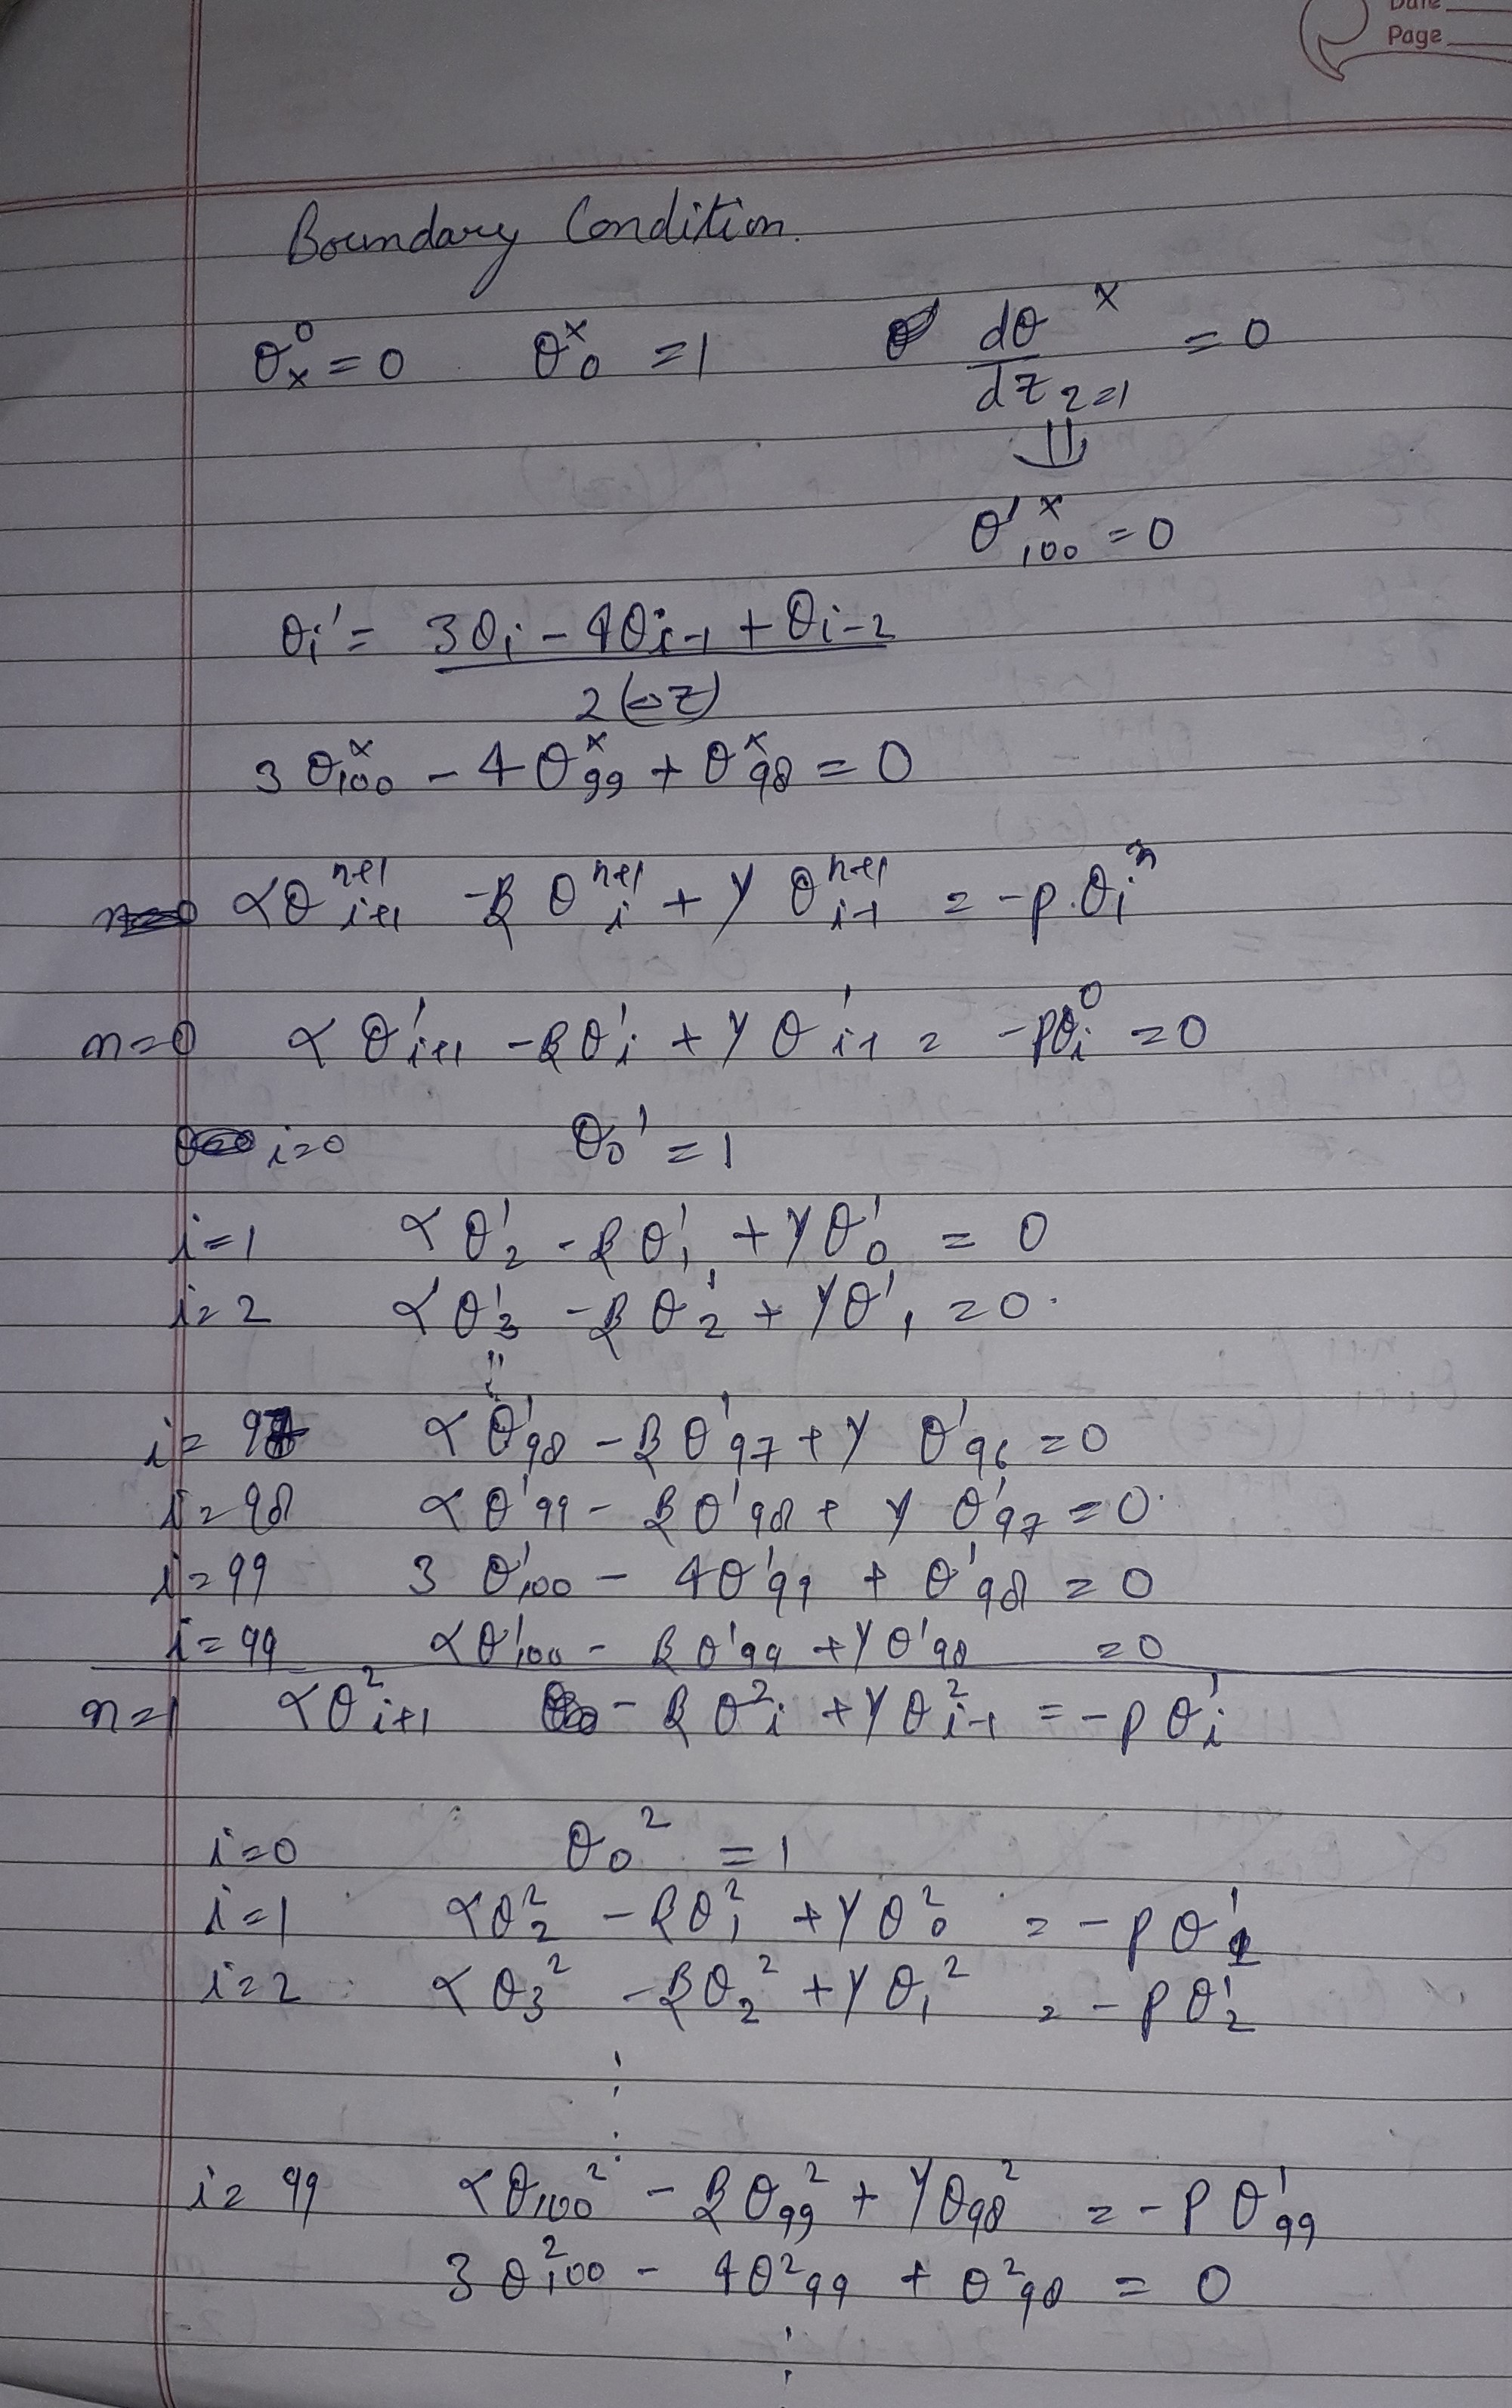 Date
Page
Boundary Condition.
θₓ⁰ = 0 θ₀ˣ = 1 dθ/dz ˣ z=1 = 0
⇓
θ'ˣ₁₀₀ = 0
θᵢ' = (3θᵢ - 4θᵢ₋₁ + θᵢ₋₂) / 2(△z)
3θˣ₁₀₀ - 4θˣ₉₉ + θˣ₉₈ = 0
αθⁿ⁺¹ᵢ₊₁ - βθⁿ⁺¹ᵢ + γθⁿ⁺¹ᵢ₋₁ = -p.θᵢⁿ
n=0 αθ¹ᵢ₊₁ - βθ¹ᵢ + γθ¹ᵢ₋₁ = -pθᵢ⁰ = 0
i=0 θ₀¹ = 1
i=1 αθ¹₂ - βθ¹₁ + γθ¹₀ = 0
i=2 αθ¹₃ - βθ¹₂ + γθ¹₁ = 0.
⋮
i=97 αθ¹₉₈ - βθ¹₉₇ + γθ¹₉₆ = 0
i=98 αθ¹₉₉ - βθ¹₉₈ + γθ¹₉₇ = 0
i=99 3θ¹₁₀₀ - 4θ¹₉₉ + θ¹₉₈ = 0
i=99 αθ¹₁₀₀ - βθ¹₉₉ + γθ¹₉₈ = 0
n=1 αθ²ᵢ₊₁ - βθ²ᵢ + γθ²ᵢ₋₁ = -pθ¹ᵢ
i=0 θ₀² = 1
i=1 αθ²₂ - βθ²₁ + γθ²₀ = -pθ¹₁
i=2 αθ₃² - βθ₂² + γθ₁² = -pθ¹₂
⋮
i=99 αθ₁₀₀² - βθ₉₉² + γθ₉₈² = -pθ¹₉₉
3θ²₁₀₀ - 4θ²₉₉ + θ²₉₈ = 0
⋮